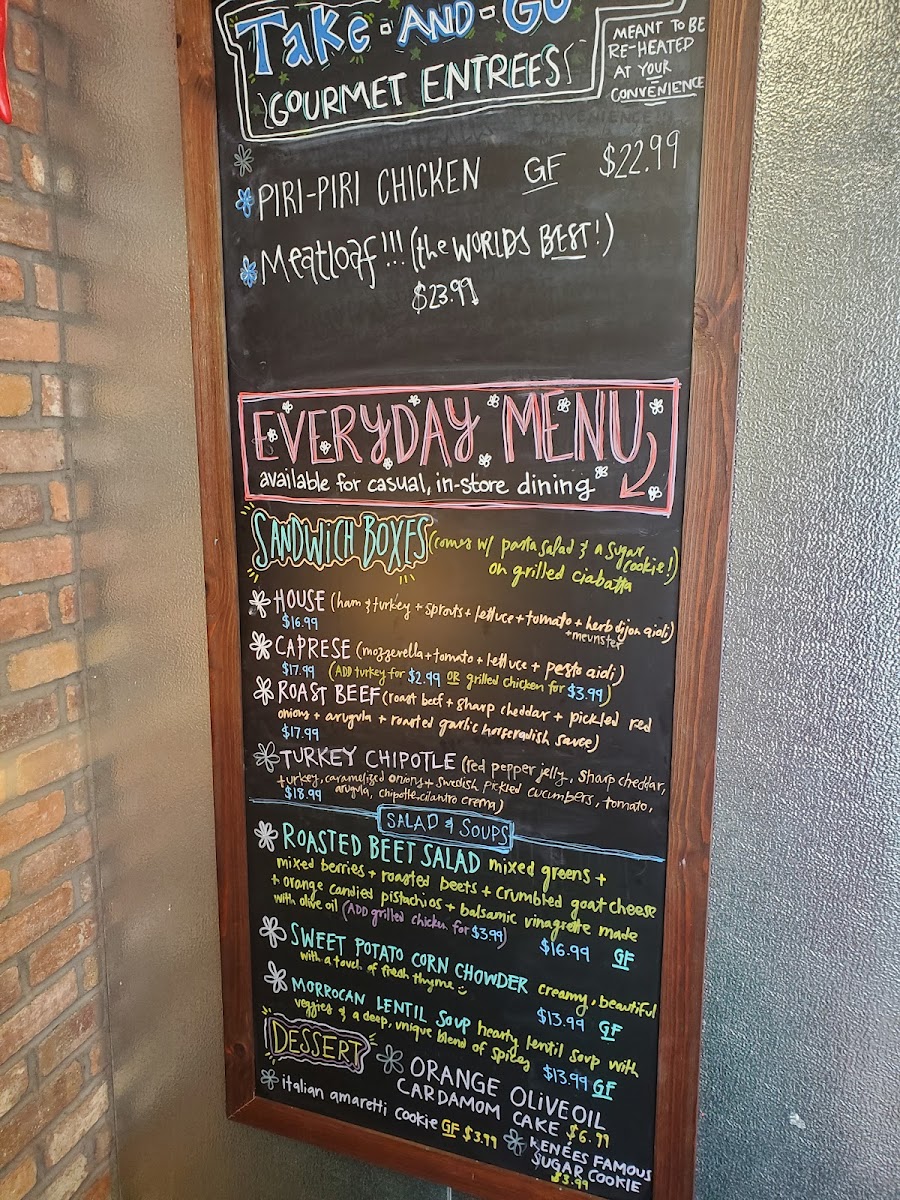 Take-AND-GO
GOURMET ENTREES
MEANT TO BE
RE-HEATED
AT YOUR
CONVENIENCE
PIRI-PIRI CHICKEN GF $22.99
Meatloaf!!! (the WORLDS BEST!)
$23.99
EVERYDAY MENU
available for casual, in-store dining
SANDWICH BOXES (comes w/ pasta salad & a sugar cookie!)
on grilled ciabatta
HOUSE (ham & turkey + sprouts + lettuce + tomato + herb dijon aioli)
$16.99 + meunster
CAPRESE (mozzerella + tomato + lettuce + pesto aioli)
$17.99 (ADD turkey for $2.99 OR grilled chicken for $3.99)
ROAST BEEF (roast beef + sharp cheddar + pickled red
onions + arugula + roasted garlic horseradish sauce)
$17.99
TURKEY CHIPOTLE (red pepper jelly, sharp cheddar,
+ turkey, caramelized onions + Swedish pickled cucumbers, tomato,
$18.99 arugula, chipotle cilantro crema)
SALAD & SOUPS
ROASTED BEET SALAD mixed greens +
mixed berries + roasted beets + crumbled goat cheese
+ orange candied pistachios + balsamic vinagrette made
with olive oil (ADD grilled chicken for $3.99) $16.99 GF
SWEET POTATO CORN CHOWDER creamy, beautiful
with a touch of fresh thyme $13.99 GF
MORROCAN LENTIL SOUP hearty lentil soup with
veggies & a deep, unique blend of spices $13.99 GF
DESSERT
ORANGE OLIVE OIL
CARDAMOM CAKE $6.99
italian amaretti cookie GF $3.99
RENÉES FAMOUS
SUGAR COOKIE
$3.99